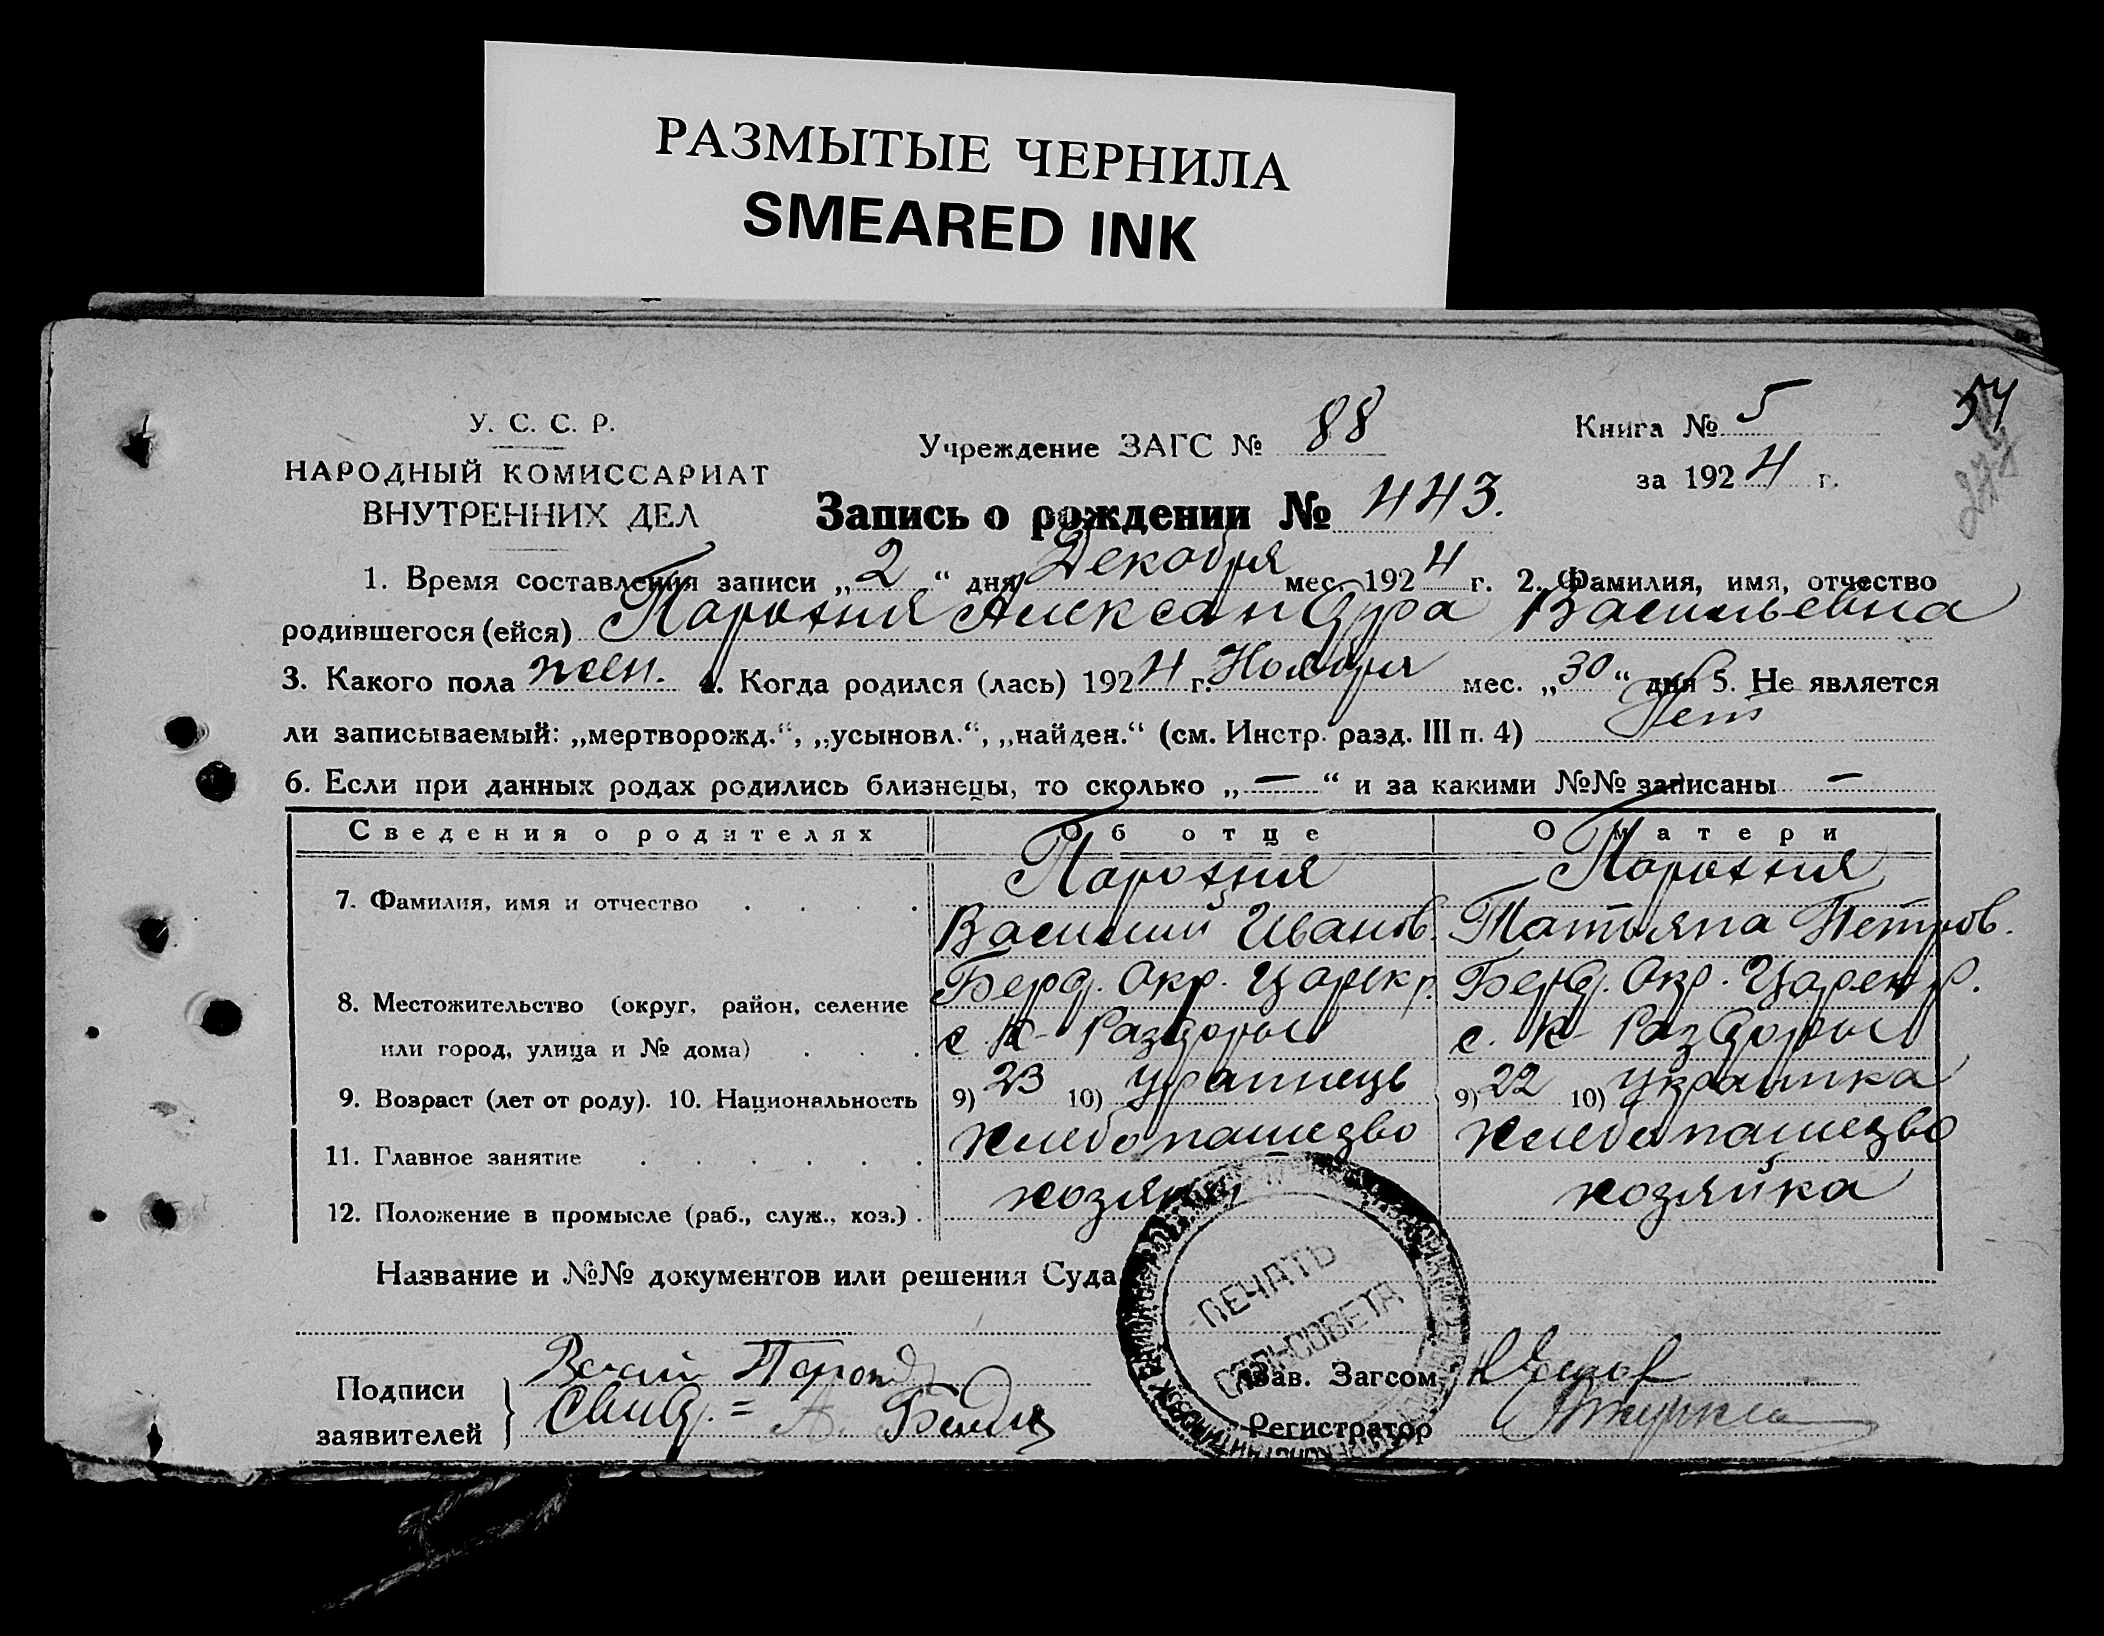 РАЗМЫТЫЕ ЧЕРНИЛА
SMEARED INK
54
У. С. С. Р.
НАРОДНЫЙ КОМИССАРИАТ
ВНУТРЕННИХ ДЕЛ
Учреждение ЗАГС № 88
Книга № 5
за 1924 г.
Запись о рождении № 443.
1. Время составления записи „2“ дня Декабря мес. 1924 г. 2. Фамилия, имя, отчество
родившегося (ейся) Парохня Александра Васильевна
3. Какого пола жен. 4. Когда родился (лась) 1924 г. Ноября мес. „30“ дня 5. Не является
ли записываемый: „мертворожд.“, „усыновл.“, „найден.“ (см. Инстр. разд. III п. 4) Нет
6. Если при данных родах родились близнецы, то сколько „—“ и за какими №№ записаны —
Сведения о родителях Об отце О матери
Парохня Парохня
7. Фамилия, имя и отчество Василий Иванов. Татьяна Петров.
8. Местожительство (округ, район, селение Берд. Окр. Царекр. Берд. Окр. Царекр.
или город, улица и № дома) с. К- Раздоры с. К- Раздоры
9. Возраст (лет от роду). 10. Национальность 9) 23 10) Украинець 9) 22 10) Украинка
11. Главное занятие Хлебопашезво Хлебопашезво
12. Положение в промысле (раб., служ., хоз.) хозяин хозяйка
Название и №№ документов или решения Суда
ПЕЧАТЬ
СЕЛЬСОВЕТА
Подписи
заявителей
Свид. = А.
Зав. Загсом
Регистратор